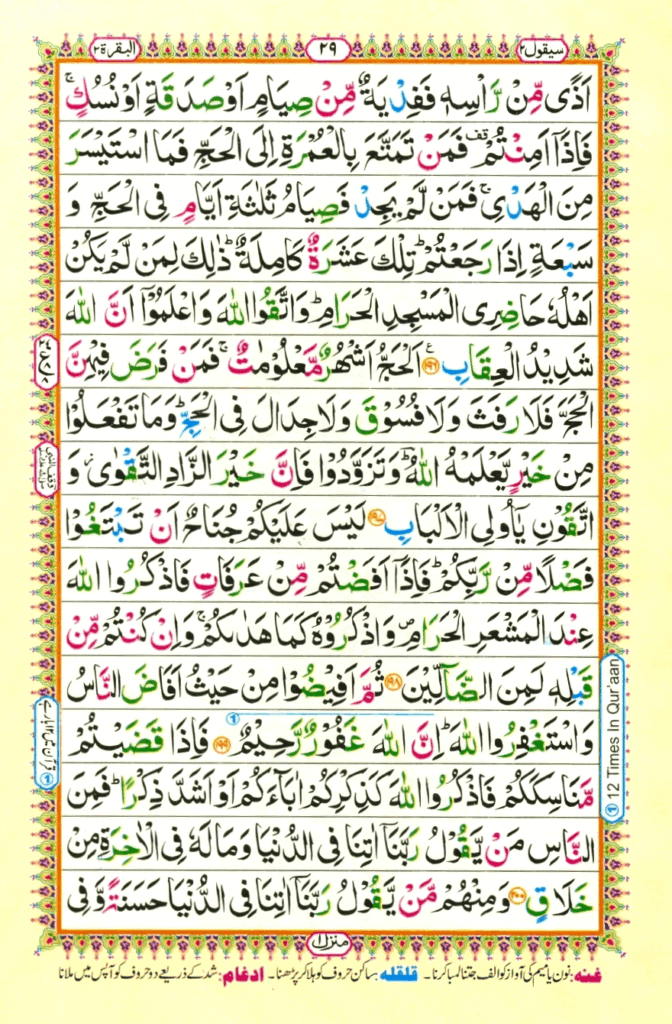 سیقول ۲
۲۹
البقرة ۲
اَذًى مِّنْ رَّاْسِهٖ فَفِدْیَةٌ مِّنْ صِیَامٍ اَوْ صَدَقَةٍ اَوْ نُسُكٍ ۚ
فَاِذَاۤ اَمِنْتُمْ ۥ وقف فَمَنْ تَمَتَّعَ بِالْعُمْرَةِ اِلَى الْحَجِّ فَمَا اسْتَیْسَرَ
مِنَ الْهَدْیِ ۚ فَمَنْ لَّمْ یَجِدْ فَصِیَامُ ثَلٰثَةِ اَیَّامٍ فِی الْحَجِّ وَ
سَبْعَةٍ اِذَا رَجَعْتُمْ ؕ تِلْكَ عَشَرَةٌ كَامِلَةٌ ؕ ذٰلِكَ لِمَنْ لَّمْ یَكُنْ
اَهْلُهٗ حَاضِرِی الْمَسْجِدِ الْحَرَامِ ؕ وَاتَّقُوا اللّٰهَ وَاعْلَمُوْۤا اَنَّ اللّٰهَ
شَدِیْدُ الْعِقَابِ ۝۱۹۶ ع اَلْحَجُّ اَشْهُرٌ مَّعْلُوْمٰتٌ ۚ فَمَنْ فَرَضَ فِیْهِنَّ
الْحَجَّ فَلَا رَفَثَ وَلَا فُسُوْقَ وَلَا جِدَالَ فِی الْحَجِّ ؕ وَمَا تَفْعَلُوْا
مِنْ خَیْرٍ یَّعْلَمْهُ اللّٰهُ ؔؕ وَتَزَوَّدُوْا فَاِنَّ خَیْرَ الزَّادِ التَّقْوٰى ؗ وَ
اتَّقُوْنِ یٰۤاُولِی الْاَلْبَابِ ۝۱۹۷ لَیْسَ عَلَیْكُمْ جُنَاحٌ اَنْ تَبْتَغُوْا
فَضْلًا مِّنْ رَّبِّكُمْ ؕ فَاِذَاۤ اَفَضْتُمْ مِّنْ عَرَفَاتٍ فَاذْكُرُوا اللّٰهَ
عِنْدَ الْمَشْعَرِ الْحَرَامِ ۪ وَاذْكُرُوْهُ كَمَا هَدٰىكُمْ ۚ وَاِنْ كُنْتُمْ مِّنْ
قَبْلِهٖ لَمِنَ الضَّآلِّیْنَ ۝۱۹۸ ثُمَّ اَفِیْضُوْا مِنْ حَیْثُ اَفَاضَ النَّاسُ
وَاسْتَغْفِرُوا اللّٰهَ ؕ اِنَّ اللّٰهَ غَفُوْرٌ رَّحِیْمٌ ۝۱۹۹ فَاِذَا قَضَیْتُمْ
مَّنَاسِكَكُمْ فَاذْكُرُوا اللّٰهَ كَذِكْرِكُمْ اٰبَآءَكُمْ اَوْ اَشَدَّ ذِكْرًا ؕ فَمِنَ
النَّاسِ مَنْ یَّقُوْلُ رَبَّنَاۤ اٰتِنَا فِی الدُّنْیَا وَمَا لَهٗ فِی الْاٰخِرَةِ مِنْ
خَلَاقٍ ۝۲۰۰ وَمِنْهُمْ مَّنْ یَّقُوْلُ رَبَّنَاۤ اٰتِنَا فِی الدُّنْیَا حَسَنَةً وَّ فِی
وقف النبی
① قرآن میں ۱۲ بار ہے
① 12 Times In Qur'aan
منزل ۱
غنه: نون یا میم کی آواز کو الف جتنا لمبا کرنا۔ قلقله: ساکن حروف کو ہلا کر پڑھنا۔ ادغام: شد کے ذریعے دو حروف کو آپس میں ملانا